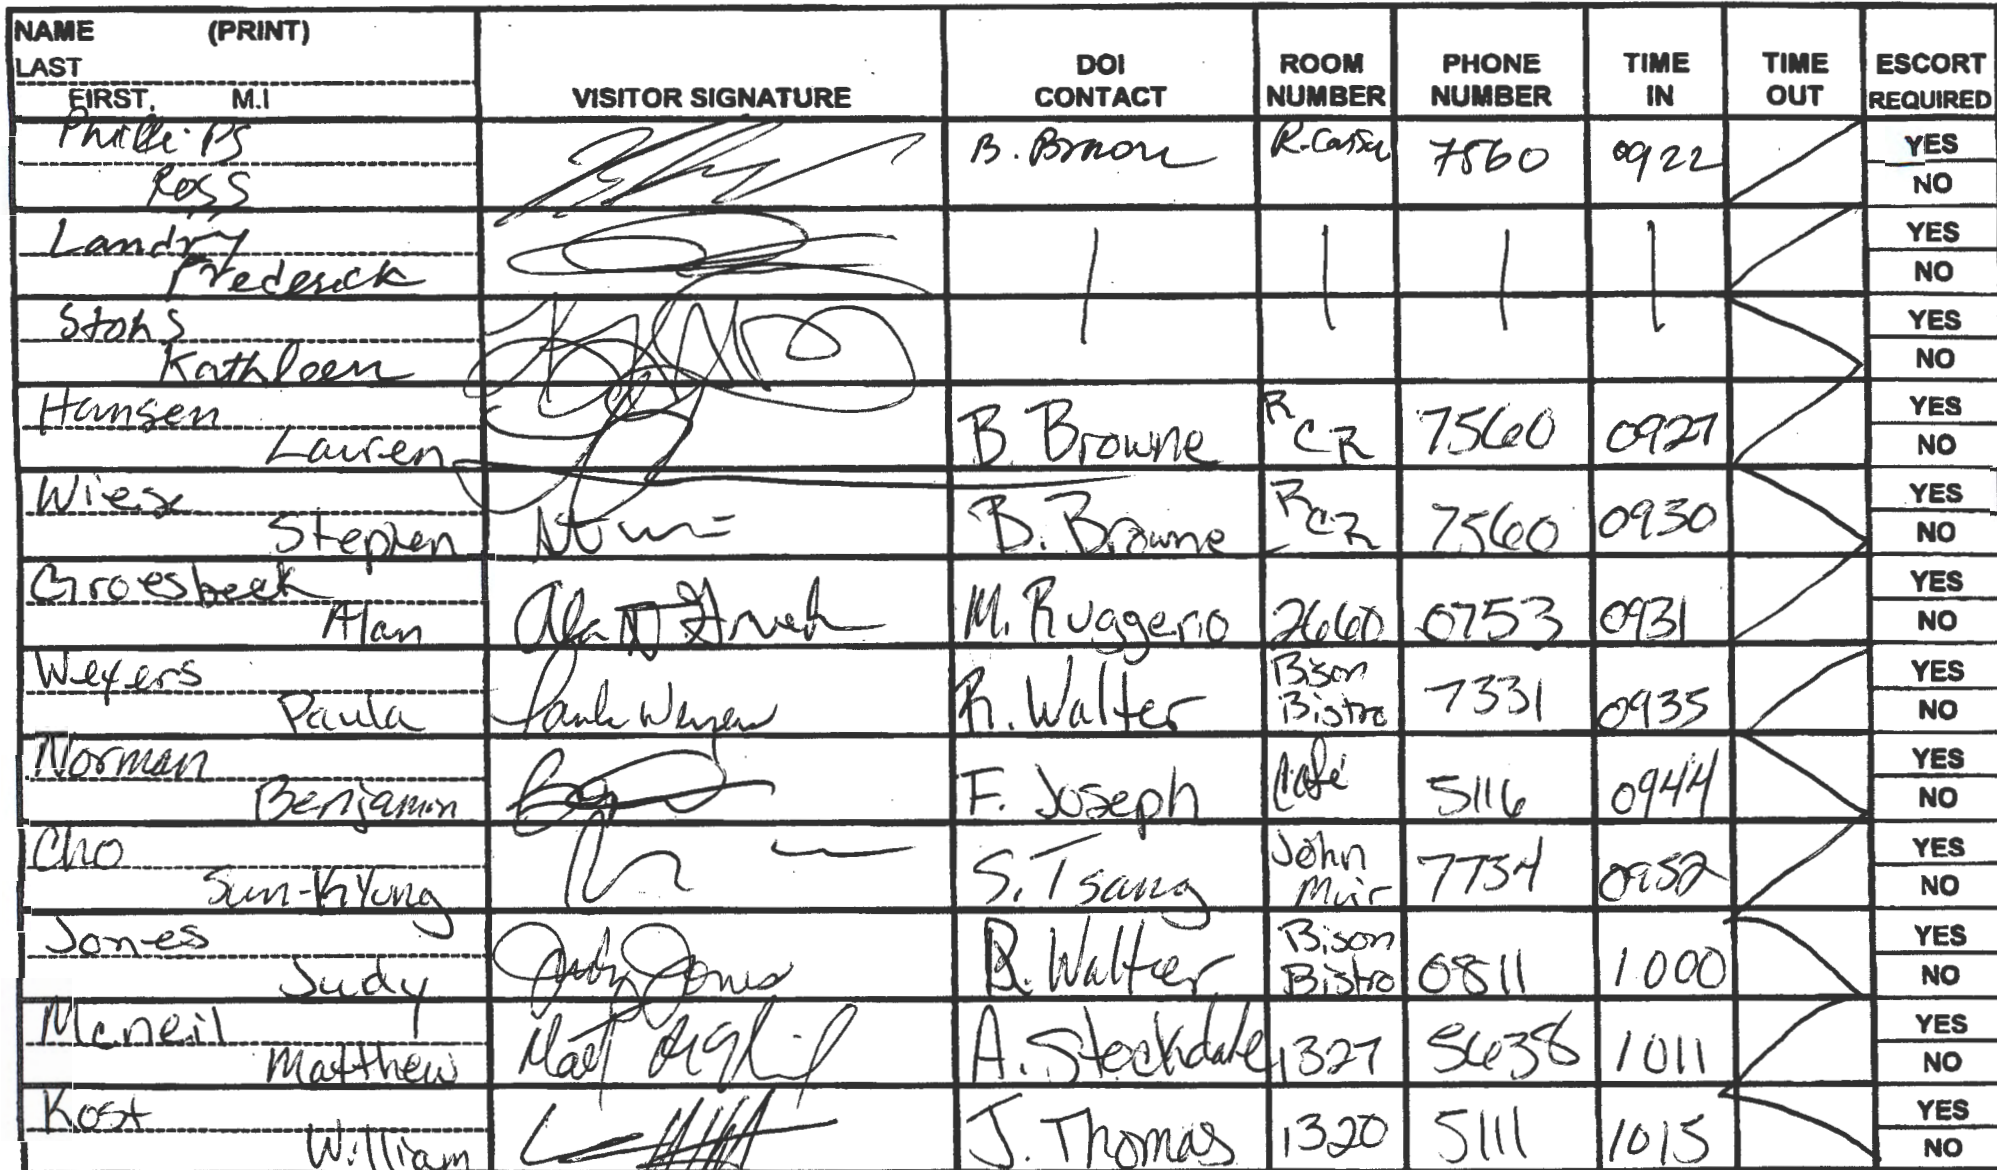 NAME (PRINT)
LAST
FIRST, M.I
VISITOR SIGNATURE
DOI CONTACT
ROOM NUMBER
PHONE NUMBER
TIME IN
TIME OUT
ESCORT REQUIRED
Phillips
Ross
B. Brown 7560 0922
YES
NO
Landry
Frederick
YES
NO
Kathleen
YES
NO
Hansen
Lauren
B. Browne RCR 7560 0927
YES
NO
Wiese
Stephen
B. Browne RCR 7560 0930
YES
NO
Groesbeek
Alan
M. Ruggerio 2660 0753 0931
YES
NO
Weyers
Paula
Paula Weyers
R. Walter Bison Bistro 7331 0935
YES
NO
Norman
Benjamin
F. Joseph Café 5116 0944
YES
NO
Cho
Sun-Kyung
S. Tsang John Muir 7734 0952
YES
NO
Jones
Judy
Judy Jones
R. Walter Bison Bistro 0811 1000
YES
NO
Mcneil
Matthew
A. Stockdale 1327 5638 1011
YES
NO
Kost
William
J. Thomas 1320 5111 1015
YES
NO